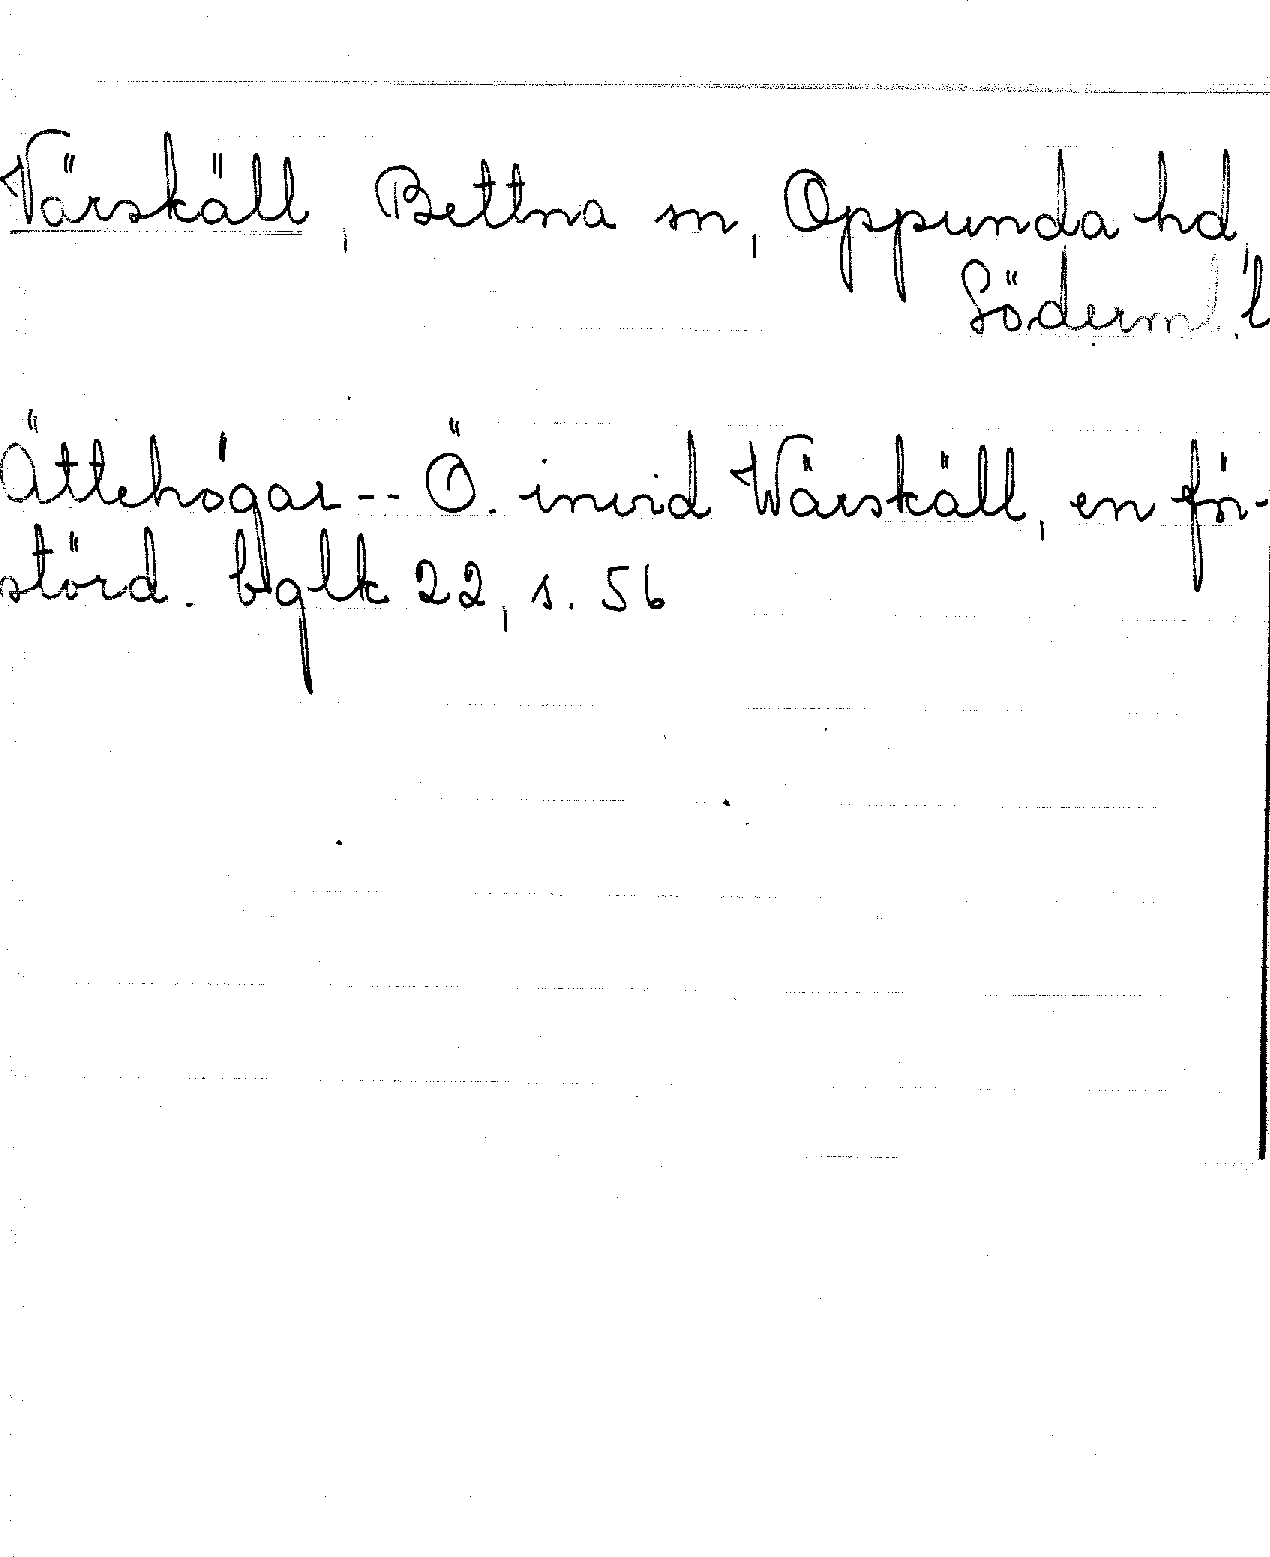 Värskäll, Bettna sn, Oppunda hd,
Söderm. l
Ättehögar -- Ö. invid Wärskäll, en för-
störd. bglk 22, s. 56